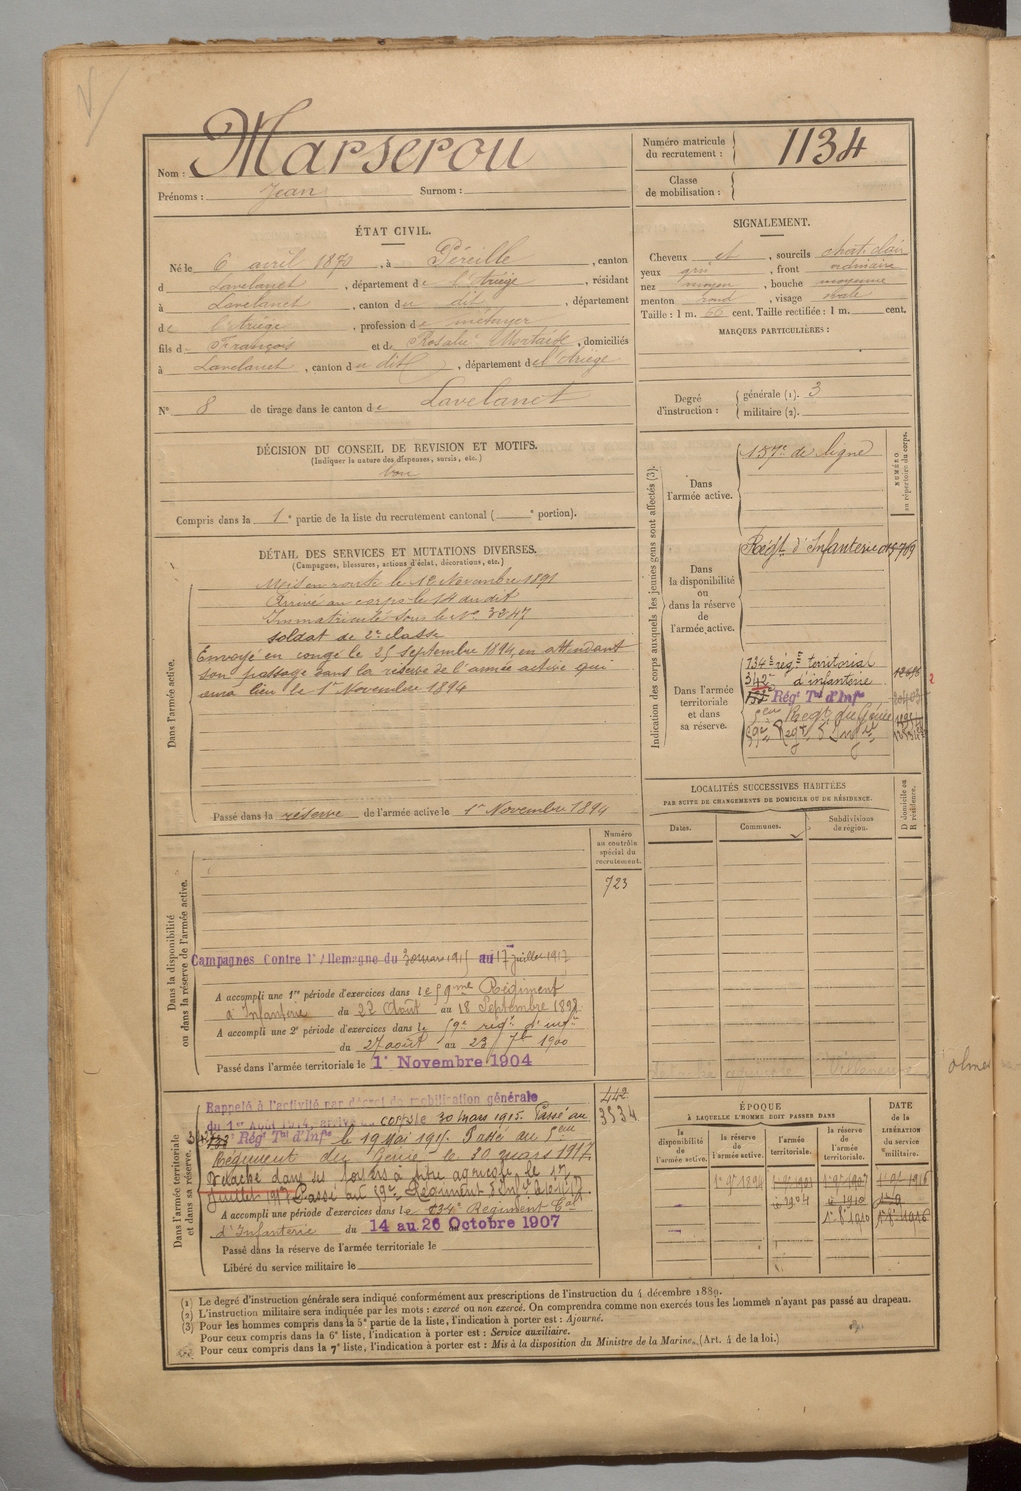 Nom : Marserou
Prénoms : Jean Surnom :
Numéro matricule du recrutement : 1134
Classe de mobilisation :
ÉTAT CIVIL.
Né le 6 avril 1870, à Péreille, canton
d Lavelanet, département de l'Ariège, résidant
à Lavelanet, canton du dit, département
de l'Ariège, profession de métayer
fils d François et de Rosalie, domiciliés
à Lavelanet, canton du dit, département de l'Ariège
N° 8 de tirage dans le canton de Lavelanet
SIGNALEMENT.
Cheveux et, sourcils chat. clair
yeux gris, front ordinaire
nez moyen, bouche moyenne
menton rond, visage ovale
Taille : 1 m. 60 cent. Taille rectifiée : 1 m. cent.
MARQUES PARTICULIÈRES :
Degré d'instruction : générale (1). 3
militaire (2).
DÉCISION DU CONSEIL DE REVISION ET MOTIFS.
(Indiquer la nature des dispenses, sursis, etc.)
bon
Compris dans la 1e partie de la liste du recrutement cantonal ( e portion).
DÉTAIL DES SERVICES ET MUTATIONS DIVERSES.
(Campagnes, blessures, actions d'éclat, décorations, etc.)
Dans l'armée active.
Mis en route le 12 Novembre 1891
Arrivé au corps le 14 du dit
Immatriculé sous le No 3247
soldat de 2e classe
Envoyé en congé le 25 Septembre 1894, en attendant
son passage dans la réserve de l'armée active qui
aura lieu le 1er Novembre 1894
Passé dans la réserve de l'armée active le 1er Novembre 1894
Indication des corps auxquels les jeunes gens sont affectés (3).
NUMÉRO au répertoire du corps.
Dans l'armée active.
157me de ligne
Dans la disponibilité ou dans la réserve de l'armée active.
Régt d'Infanterie
Dans l'armée territoriale et dans sa réserve.
134e régt territorial
d'infanterie
342e
Régt Tal d'Infie
5eme Régt du Génie
59e Regt d'Infie
LOCALITÉS SUCCESSIVES HABITÉES
PAR SUITE DE CHANGEMENTS DE DOMICILE OU DE RÉSIDENCE.
Dates. Communes. Subdivisions de région. D domicile ou R résidence.
Dans la disponibilité ou dans la réserve de l'armée active.
Numéro au contrôle spécial du recrutement.
723
Campagnes Contre l'Allemagne du 30 mars 1915 au 17 juillet 1917
A accompli une 1re période d'exercices dans le 59me Régiment
d'Infanterie du 22 Août au 18 Septembre 1897
A accompli une 2e période d'exercices dans le 59e régt d'infie
du 27 août au 23 7b 1900
Passé dans l'armée territoriale le 1er Novembre 1904
Dans l'armée territoriale et dans sa réserve.
442
3534
Rappelé à l'activité par décret de mobilisation générale
du 1er Août 1914, arrivé corps le 30 mars 1915. Passé au
Régt Tal d'Infie le 19 Mai 1915. Passé au 5eme
Régiment du Génie le 30 mars 1917
Détaché dans ses foyers à titre agricole le 17
Juillet 1917 Passé au 59e Régiment d'Infie
A accompli une période d'exercices dans le 134e Régiment Tal
d'Infanterie du 14 au 26 Octobre 1907
Passé dans la réserve de l'armée territoriale le
Libéré du service militaire le
ÉPOQUE
À LAQUELLE L'HOMME DOIT PASSER DANS
la disponibilité de l'armée active.
la réserve de l'armée active.
l'armée territoriale.
la réserve de l'armée territoriale.
DATE de la LIBÉRATION du service militaire.
1er 9bre 1894
(1) Le degré d'instruction générale sera indiqué conformément aux prescriptions de l'instruction du 4 décembre 1889.
(2) L'instruction militaire sera indiquée par les mots : exercé ou non exercé. On comprendra comme non exercés tous les hommes n'ayant pas passé au drapeau.
(3) Pour les hommes compris dans la 5e partie de la liste, l'indication à porter est : Ajourné.
Pour ceux compris dans la 6e liste, l'indication à porter est : Service auxiliaire.
Pour ceux compris dans la 7e liste, l'indication à porter est : Mis à la disposition du Ministre de la Marine. (Art. 4 de la loi.)